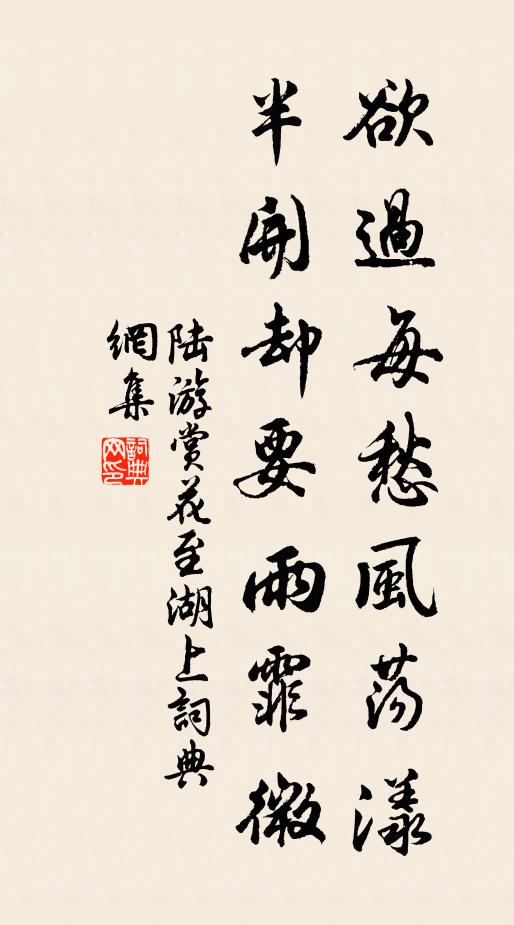 欲過每愁風蕩漾
半開却要雨霏微
陸游賞花至湖上詞典
網集
詞典網印